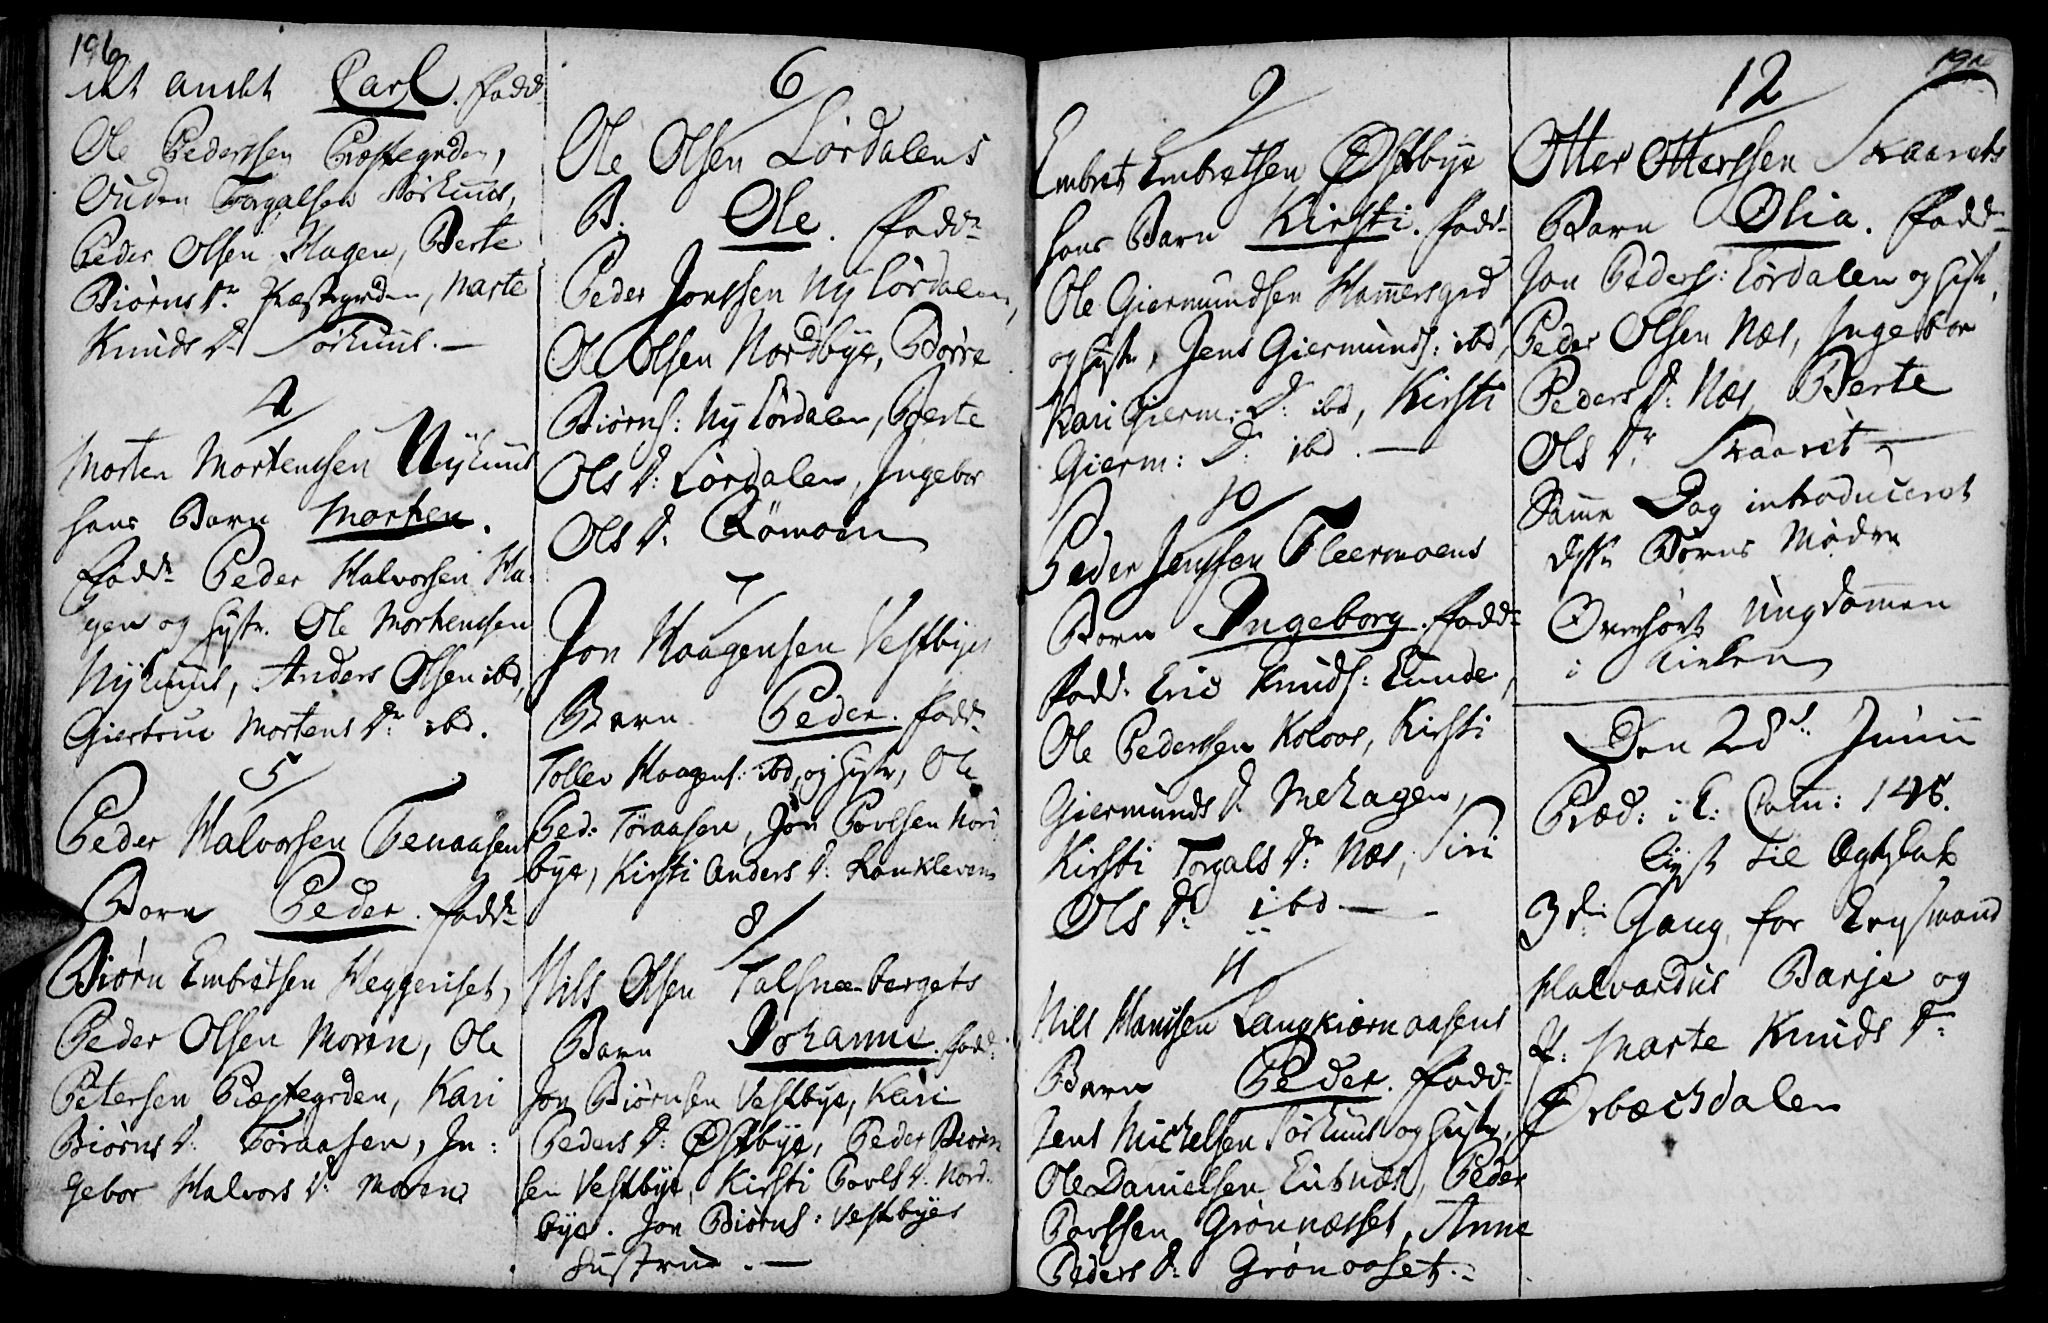 196
det andet Carl. fadd.
Ole Pedersen Præstegrden,
Ouden Torgalsen Sørhuus,
Peder Olsen Hagen, Berte
Biørns Dr Præstegrden, Marte
Knuds Dr Sørhuus. —
4
Morten Mortenssen Nyhuus
hans Barn Morten.
Faddr Peder Halvorsen Ha-
gen og Hystr. Ole Mortenssen
Nyhuus, Anders Olsen ibd,
Giertrue Mortens Dr ibd.
5
Peder Halvorsen Tenaasens
Barn Peder. faddr
Biørn Embretsen Heggeriset,
Peder Olsen Moren, Ole
Petersen Præstegrden, Kari
Biørns D: Toraasen, In:
gebor Halvors D: Moren
6
Ole Olsen Lørdalens
B. Ole. faddr
Peder Jonssen Ny Lørdalen,
Ole Olsen Nordbye, Børre
Biørns: Ny Lørdalen, Berte
Ols D: Lørdalen, Ingebor
Ols D: Römoen
7
Jon Haagensen Vestbyes
Barn Peder. faddr
Tollev Haagens: ibd, og Hystr, Ole
Ped: Töraasen, Jon Povlsen Nord
bye, Kirsti Anders D: Ranklevens
8
Nils Olsen Talsnæbergets
Barn Johanne. fadd:
Jon Biørnsen Vestbye, Kari
Peders D: Østbye, Peder Biørn
sen Vestbye, Kirsti Povls D: Nord-
bye. Jon Biørns: Vestbyes
Hustrue. —
9
Embret Embretsen Østbye
hans Barn Kirsti. fadd-
Ole Giermundsen Hamersgrd
og Hystr, Jens Giermunds: ibd,
Kari Gierm: D: ibd, Kirsti
Gierm: D: ibd. —
10
Peder Jenssen Fleermoens
Barn Ingeborg. fadd-
fadd: Eric Knuds: Lunde,
Ole Pederssen Koloos, Kirsti
Giermunds D. Mehagen,
Kirsti Torgals Dr Næs, Siri
Ols Dr ibd —
11
Nils Hanssen Langkiørnaasens
Barn Peder. Fadd-
Jens Michelsen Sørhuus og Hustr,
Ole Danielsen Enbnæs, Peder
Povlssen Grønnæsset, Anne
Peders D: Grønoset.
12
Otter Otterssen Skaarets
Barn Olia. fadd-
Jon Peders: Lørdalen og Hystr,
Peder Olsen Næs, Ingebor
Peders D: Næs, Berte
Ols Dr Skaaret —
Samme Dag introduceret
disse Børns Mødre
Overhørt Ungdommen
i Kirken
Den 28d Junii
Præd: i T: Catn: 148.
lyst til Ægteskab
3de Gang for Enkemand
Halvardus Barje og
P: Marte Knuds D:
Ørbæchdalen